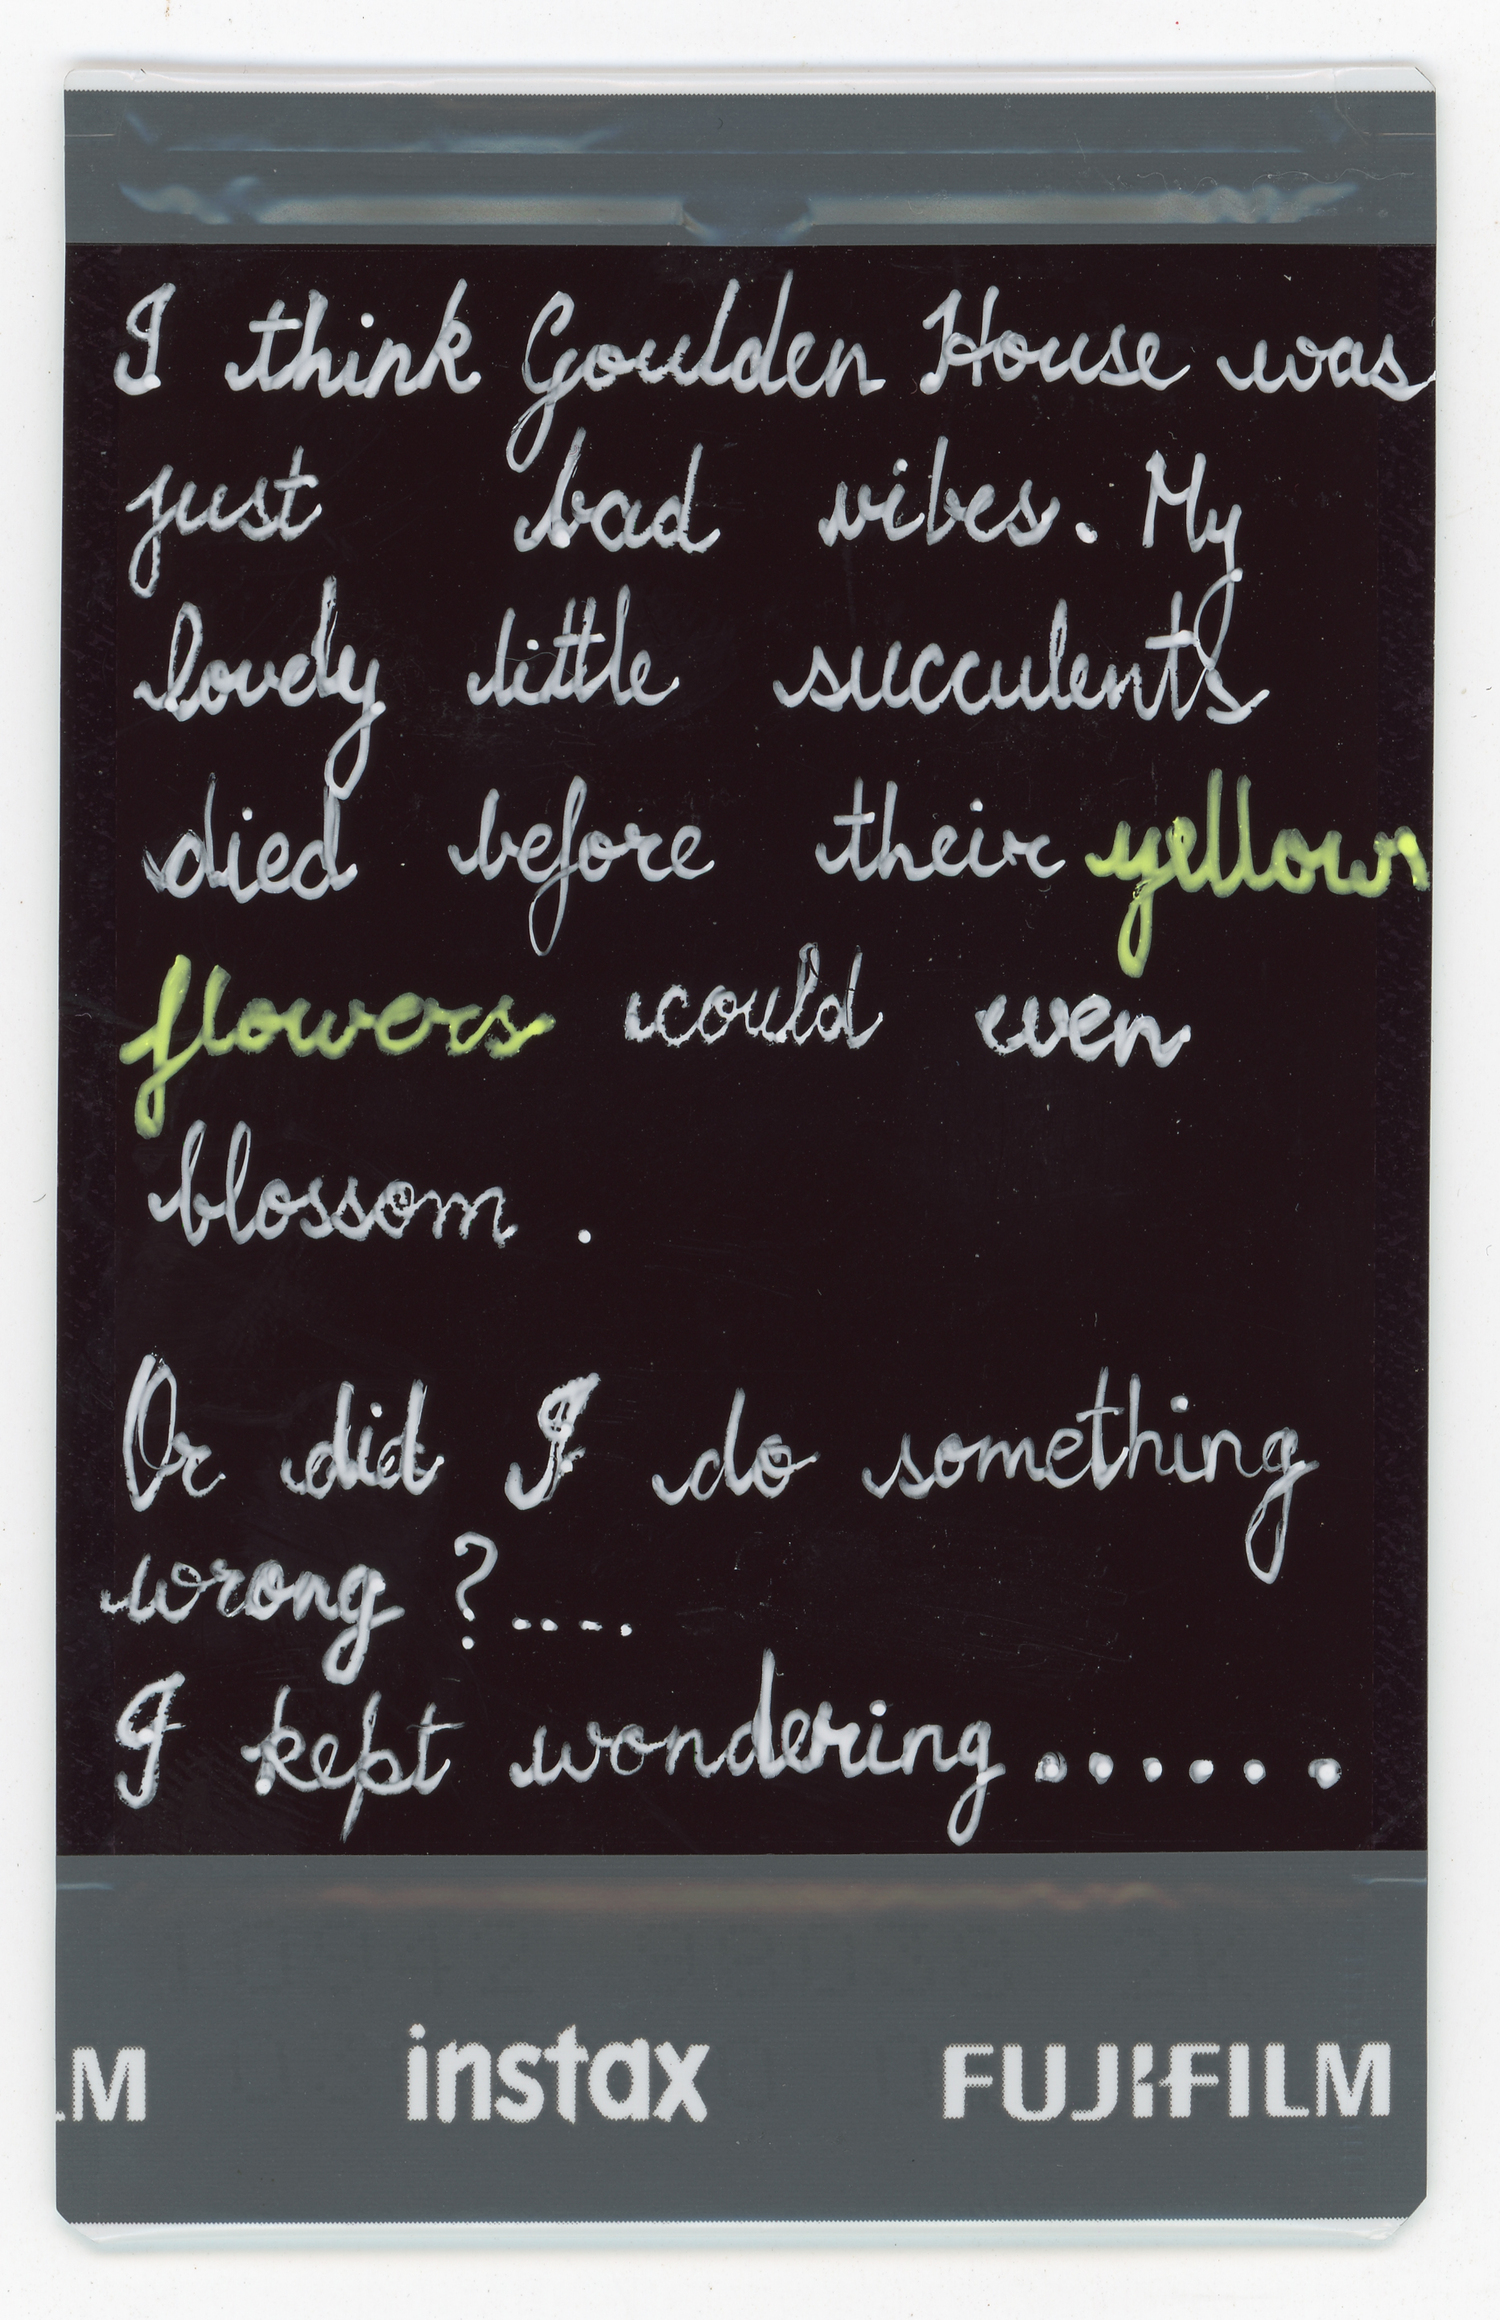 I think Goulden House was
just bad vibes. My
lovely little succulents
died before their yellow
flowers could even
blossom .
Or did I do something
wrong ?....
I kept wondering......
LM instax FUJIFILM